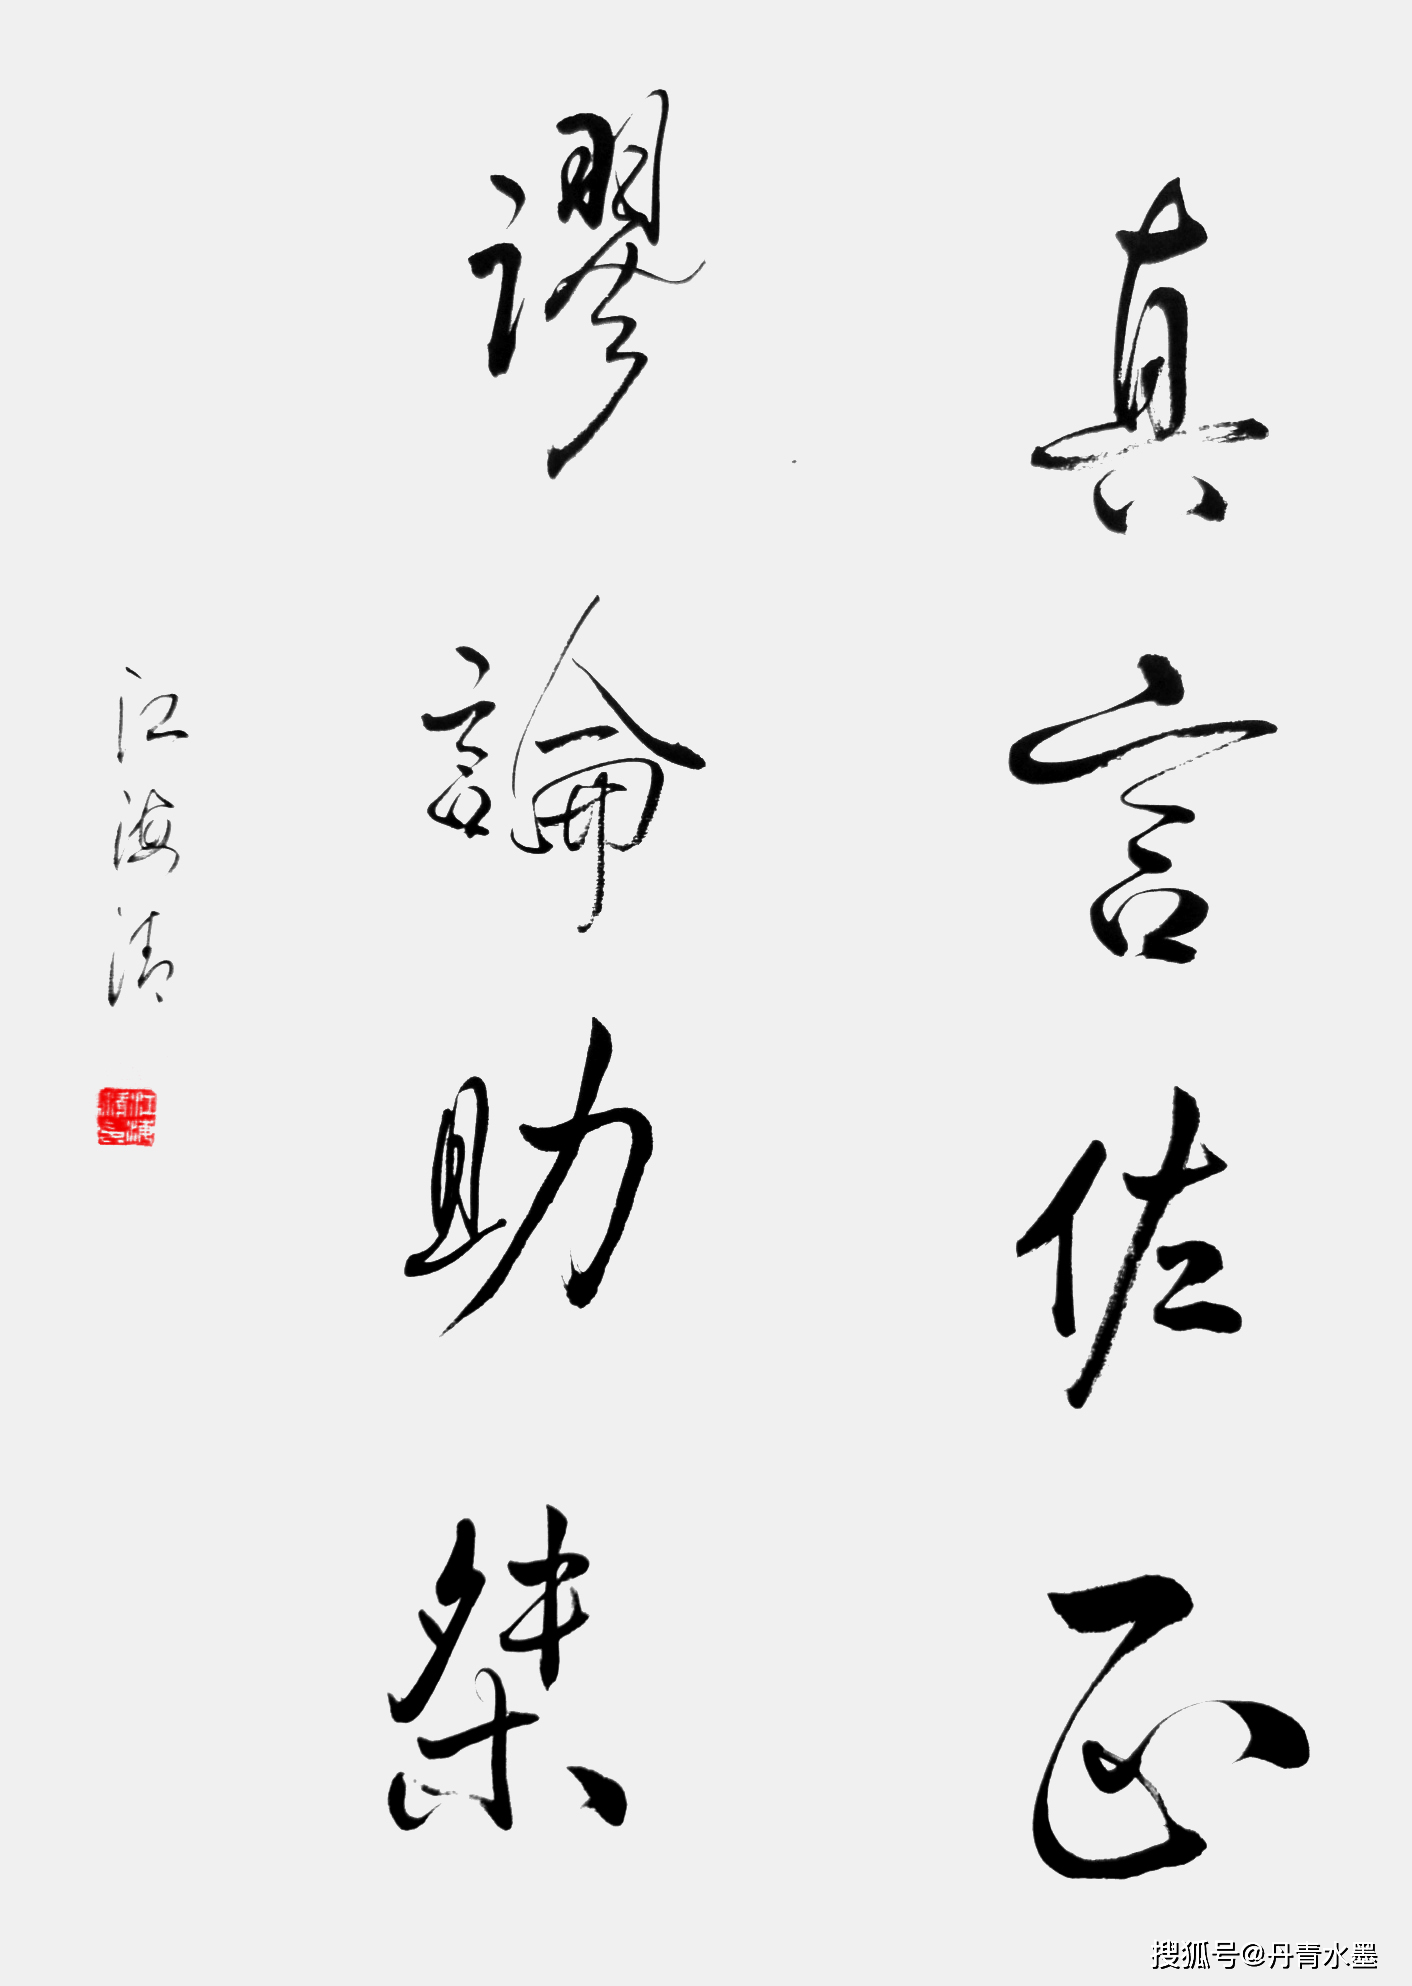 真言佐正
謬論助桀
江海清
搜狐号@丹青水墨